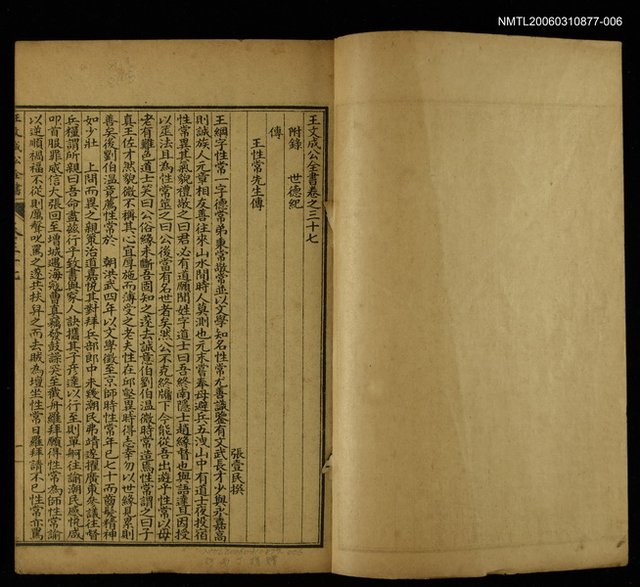 NMTL20060310877-006
王文成公全書卷之三十七
附錄　世德紀
傳
王性常先生傳
張壹民撰
王綱字性常一字德常弟秉常敬常並以文學知名性常尤善識鑒有文武長才少與永嘉高
則誠族人元章相友善往來山水間時人莫測也元末嘗奉母避兵五洩山中有道士夜投宿
性常異其氣貌禮敬之曰君必有道願聞姓字道士曰吾終南隱士趙緣督也與語達旦因授
以筮法且為性常筮之曰公後當有名世者矣然公不克終牖下今能從吾出遊乎性常以母
老有難色道士笑曰公俗緣未斷吾固知之遂去誠意伯劉伯溫微時常造焉性常謂之曰子
真王佐才然貌微不稱其心宜厚施而薄受之老夫性在邱壑異時得志幸勿以世緣見累則
善矣後劉伯溫竟薦性常於　朝洪武四年以文學徵至京師時性常年已七十而齒髮精神
如少壯　上問而異之親策治道嘉悅其對拜兵部郎中未幾潮民弗靖遂擢廣東參議往督
兵糧謂所親曰吾命盡茲行乎致書與家人訣攜其子彥達以行至則單舸往諭潮民感悅咸
叩首服罪威信大張回至增城遇海寇曹真竊發鼓譟突至截舟羅拜願得性常為帥性常諭
以逆順禍福不從則厲聲叱罵之遂共扶舁之而去賊為壇坐性常日羅拜請不已性常亦罵
王文成公全書